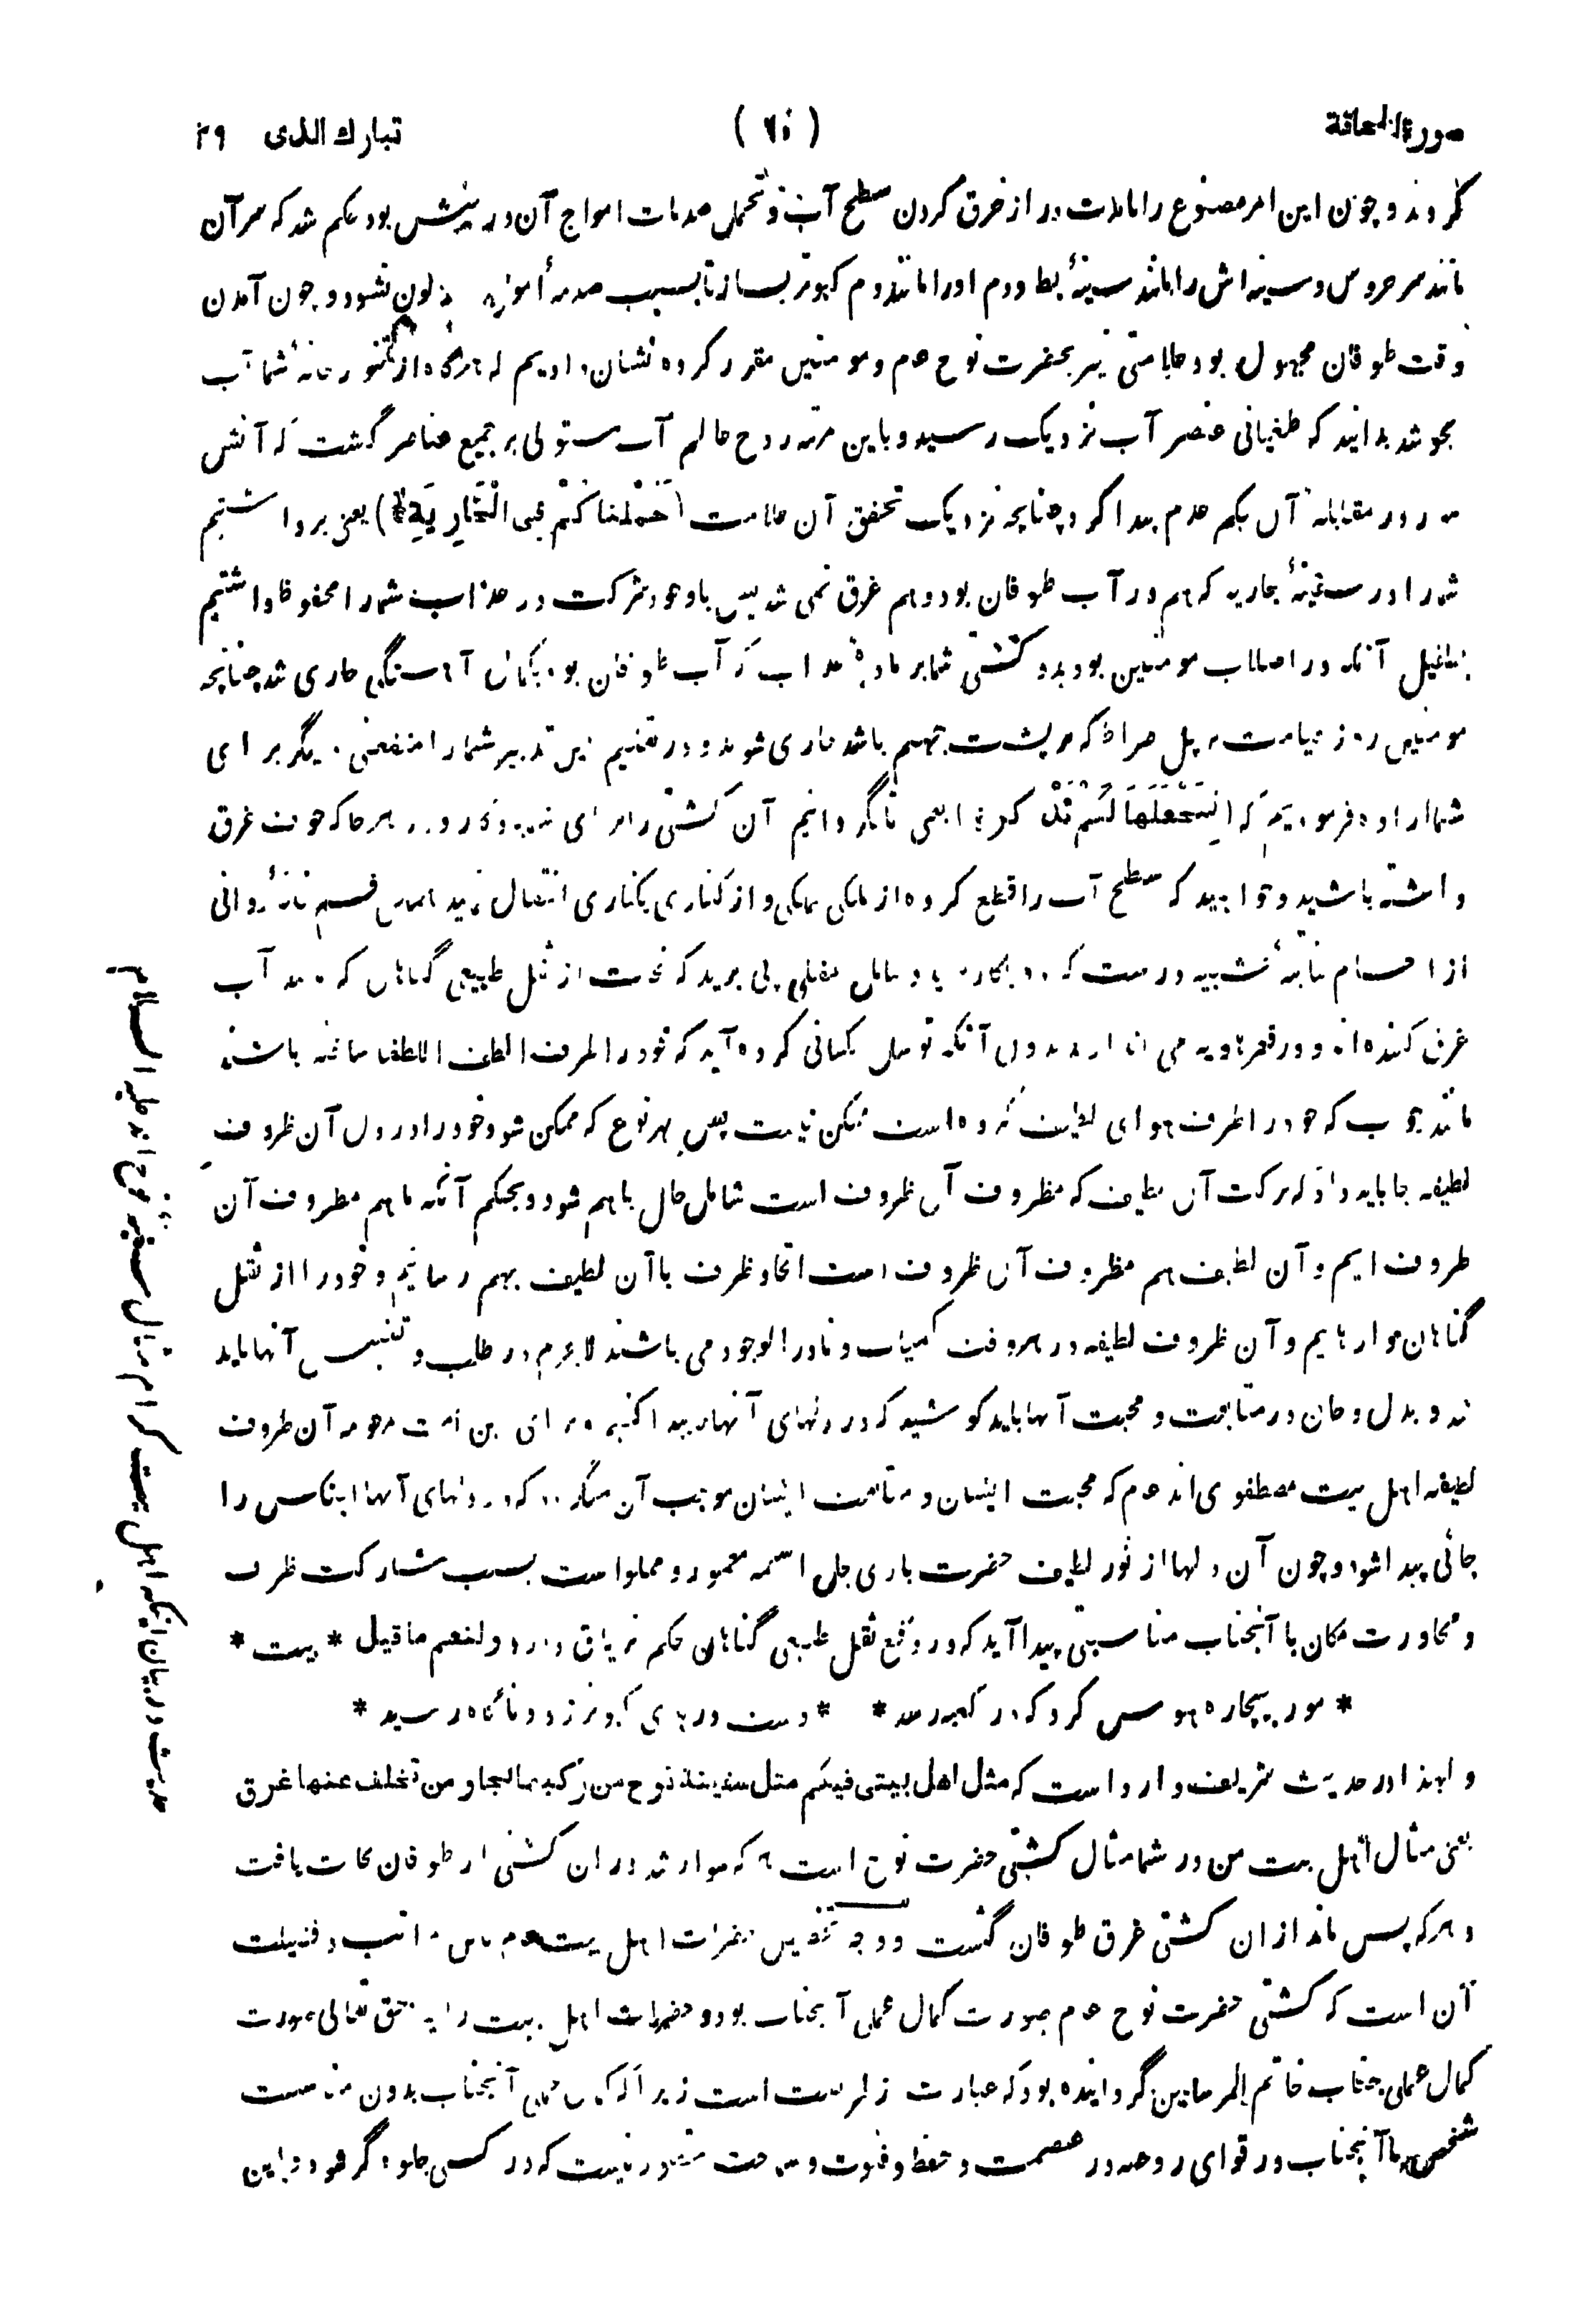 سورة الحاقة
( ٦٠ )
تبارك الذى ٢٩
کردند و چون این امر مصنوع را از خرق کردن سطح آب و تحمل صدمات امواج آن در پیش بود حکم شد که سر آن
مانند سر خروس و سینه اش را مانند سینهٔ بط و دم او را مانند دم کبوتر بسازتا بسبب صدمهٔ امواج نشود و چون آمدن
وقت طوفان مجهول بود علامتی نیز بحضرت نوح عم و مومنین مقرر کرده نشان دادیم که هرگاه از تنور خانهٔ شما آب
بجوشد بدانید که طغیانی عنصر آب نزدیک رسید و باین مرتبه روح عالم آب مستولی بر جمیع عناصر گشت که آتش
در مقابلهٔ آن حکم عدم پیدا کرد چنانچه نزدیک تحقق آن علامت (حَمَلْنَاكُمْ فِى الْجَارِيَةِ) یعنی برداشتیم
شما را در سفینهٔ جاریه که هم در آب طوفان بود و هم غرق نمی شد پس باوجود شرکت در عذاب شما را محفوظ داشتیم
بطفیل آنکه در اصلاب مومنین بودید و کشتی شما بر مادهٔ عذاب که آب طوفان بود بکمال آهستگی جاری شد چنانچه
مومنین روز قیامت بر پل صراط که بر پشت جهنم باشد جاری شوند و در تعلیم این تدبیر شما را منفعتی دیگر برای
شما اراده فرمودیم که لِنَجْعَلَهَا لَكُمْ تَذْكِرَةً یعنی تا گردانیم آن کشتی را برای شما هرجا که خوف غرق
داشته باشید و خواهید که سطح آب را قطع کرده از ملکی بملکی و از کناری بکناری انتقال نمائید
از اقسام تشبیه درست کرده بکار برید و بتامل عقلی پی برید که نجات از ثقل طبیعی گناهان که مانند آب
غرق کننده اند و در قعر هاویه می اندازند بدون آنکه توسل بکسانی کرده آید که خود را ظرف الطف اللطفا ساخته باشند
مانند چوب که خود را ظرف هوای لطیف کرده است ممکن نیست پس بهر نوع که ممکن شود خود را در دل آن ظروف
لطیفه جا باید داد که برکت آن لطیف که مظروف آن ظروف است شامل حال ما هم شود و بحکم آنکه ما هم مظروف آن
ظروف ایم و آن لطیف هم مظروف آن ظروف است اتحاد ظرف باآن لطیف بهم رسانیم و خود را از ثقل
گناهان وارهایم و آن ظروف لطیفه در هر وقت کمیاب و نادر الوجود می باشند لاجرم در طلب و تفتیش آنها باید
شد و بدل و جان در متابعت و محبت آنها باید کوشید که در دلهای آنها جا پیدا کنیم و برای این امت مرحومه آن ظروف
لطیفه اهل بیت مصطفوی اند عم که محبت ایشان و متابعت ایشان موجب آن میگردد که در دلهای آنها اینکس را
جائی پیدا شود و چون آن دلها از نور لطیف حضرت باری جل اسمه معمور و مملو است بسبب مشارکت ظرف
و مجاورت مکان با آنجناب مناسبتی پیدا آید که در دفع ثقل طبیعی گناهان حکم تریاق دارد و لنعم ما قیل * بیت *
* مور بیچاره هوس کرد که در کعبه رسد * * دست در پای کبوتر زد و ناگاه رسید *
و لهذا در حدیث شریف وارد است که مثل اهل بیتی فیکم مثل سفینة نوح من رکبها نجا و من تخلف عنها غرق
یعنی مثال اهل بیت من در شما مثال کشتی حضرت نوح است هرکه سوار شد در ان کشتی از طوفان نجات یافت
و هرکه پس ماند از ان کشتی غرق طوفان گشت و وجه تخصیص حضرات اهل بیت عم باین مراتب و فضیلت
آن است که کشتی حضرت نوح عم صورت کمال عملی آنجناب بود و حضرات اهل بیت را نیز حق تعالی صورت
کمال عملی جناب خاتم المرسلین گردانیده بود که عبارت از طریقت است زیرا که کمال عملی آنجناب بدون مناسبت
شخصی با آنجناب در قوای روحیه در عصمت و حفظ و فتوت و سماحت متصور نیست که در کسی جلوه گر شود و این
حدیث در بیان اینکه اهل بیت کرام مثال سفینهٔ نوح اند علیه السلام